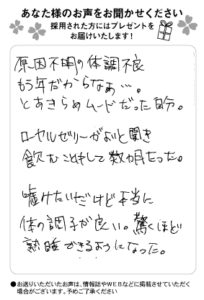 あなた様のお声をお聞かせください
採用された方にはプレゼントを
お届けいたします！
原因不明の体調不良
もう年だからなぁ…。
とあきらめムードだった毎日。
ローヤルゼリーがよいと聞き
飲むことにして数カ月たった。
嘘みたいだけど本当に
体の調子が良い。驚くほど
熟睡できるようになった。
●お送りいただいたお声は、情報誌やWEBなどに掲載させていただく
場合がございます。予めご了承ください